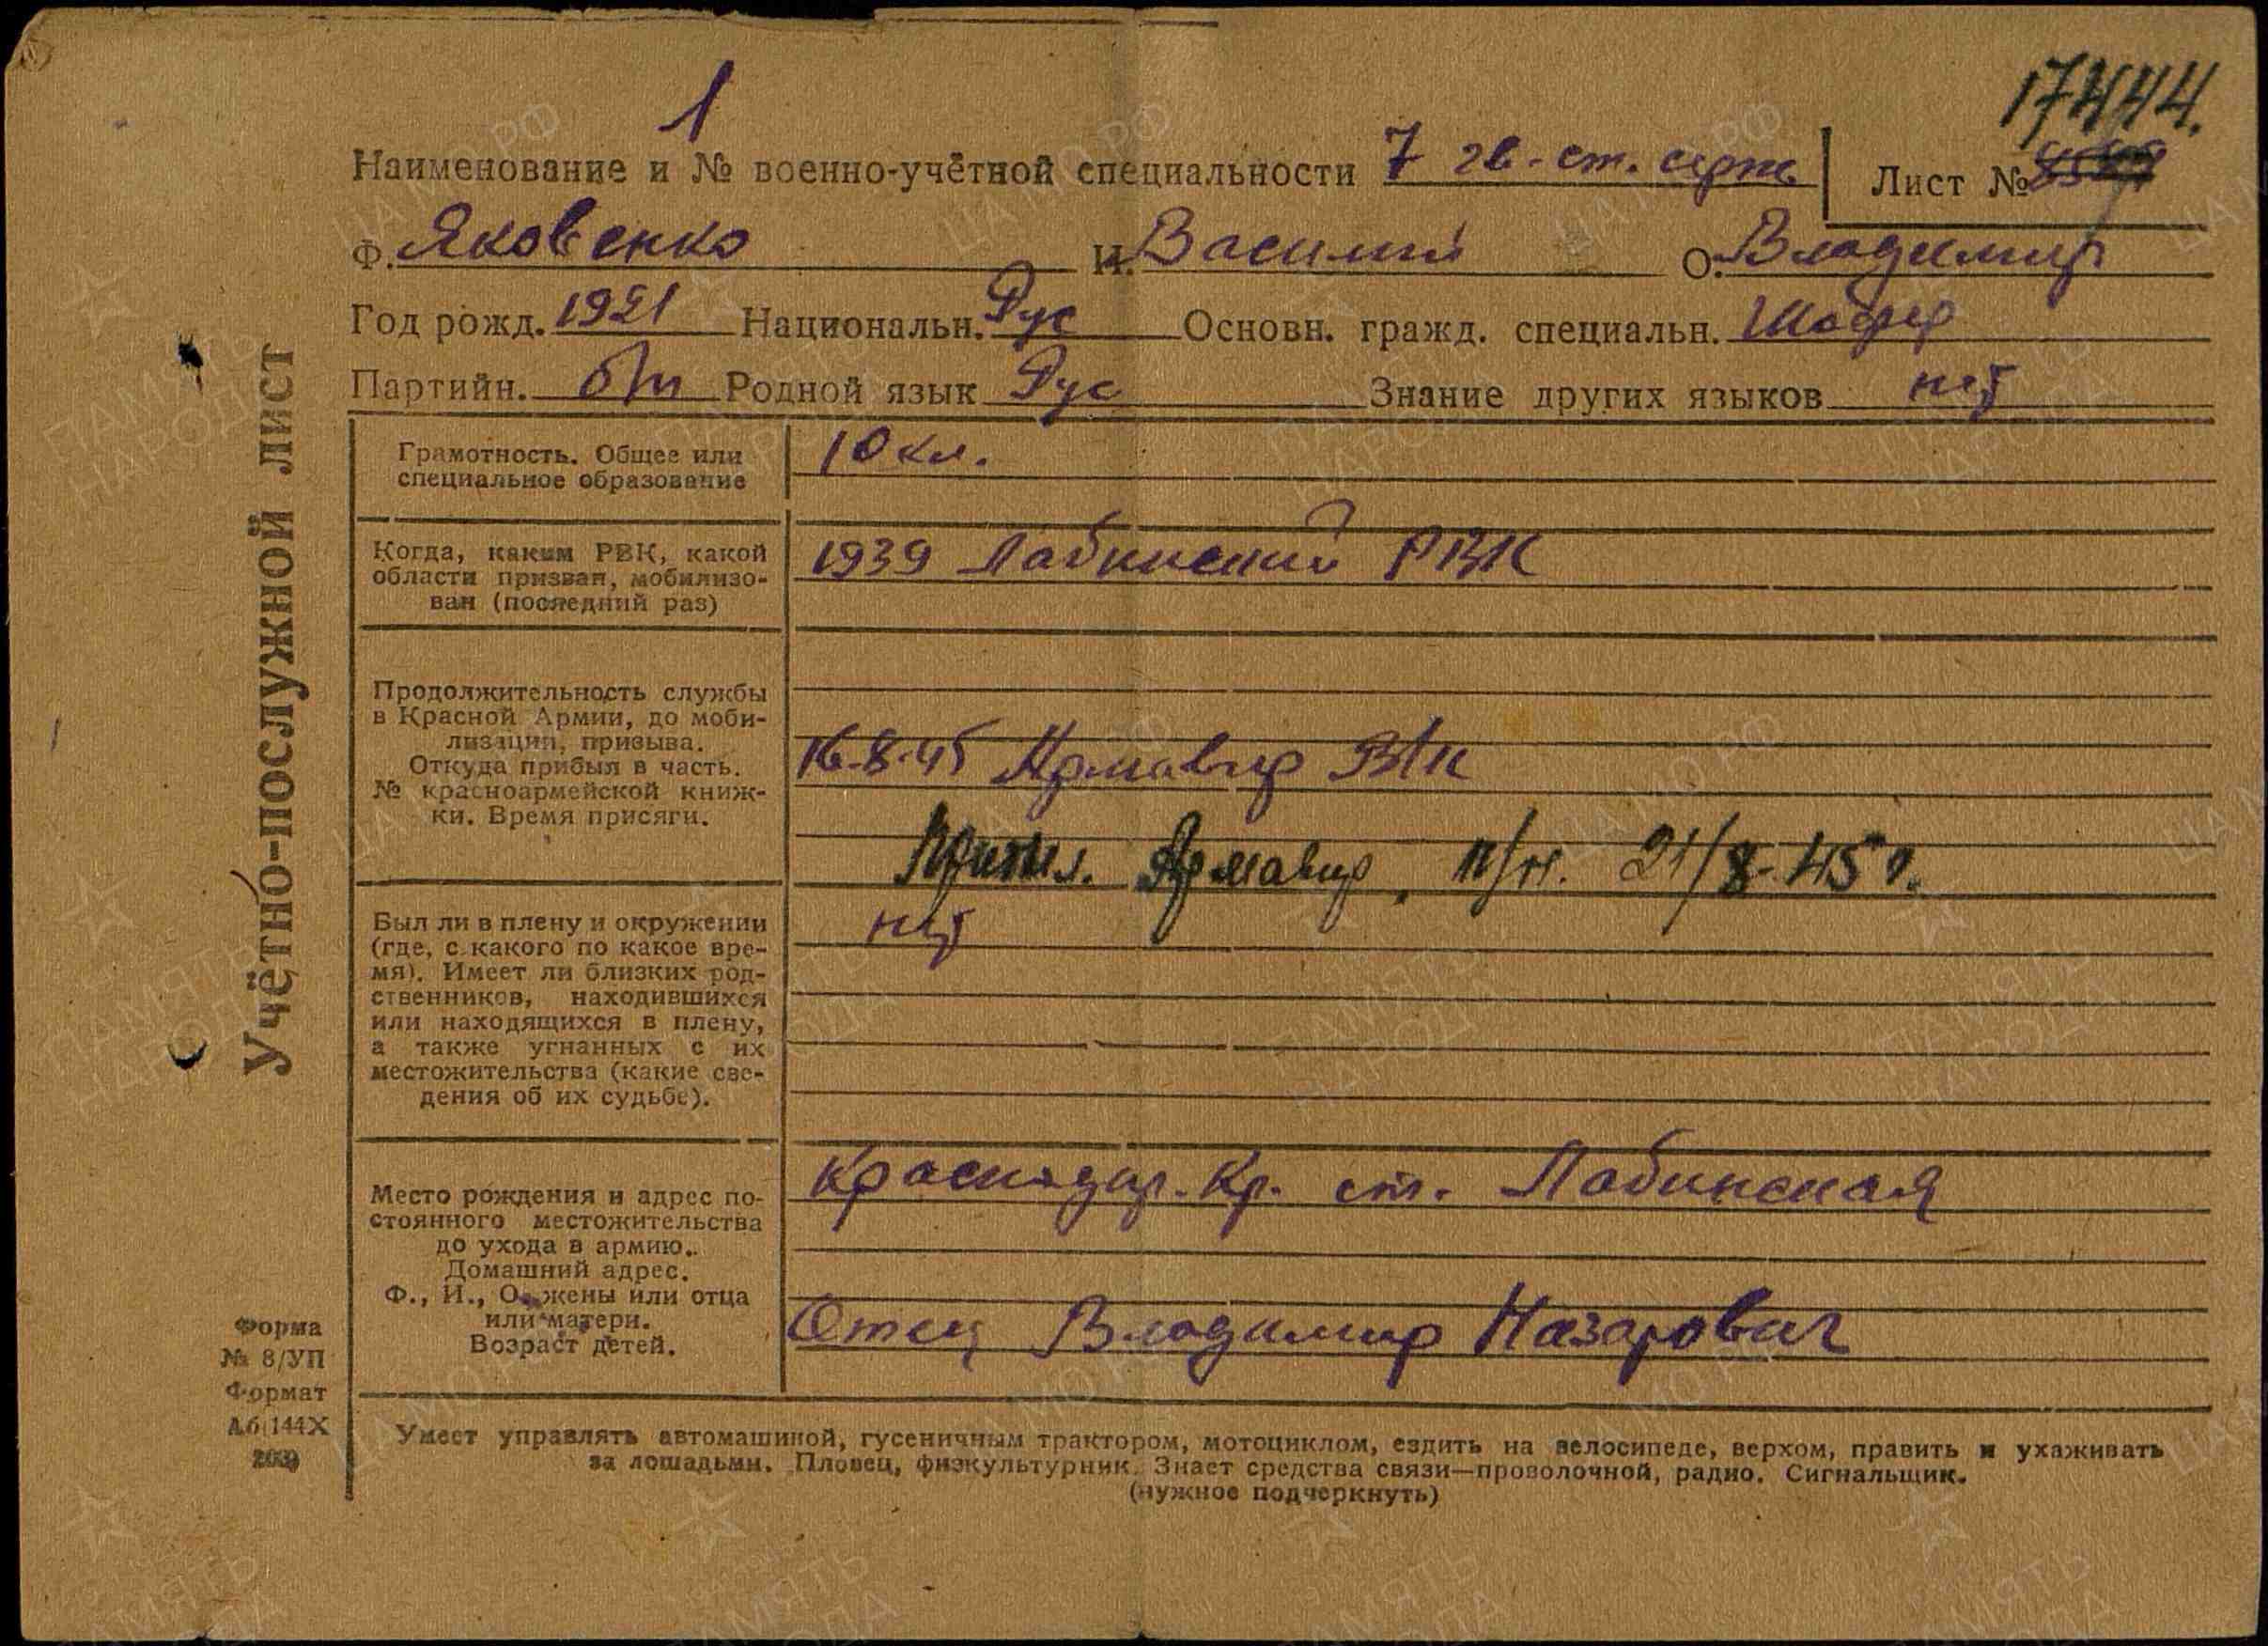 1
17444.
Наименование и № военно-учётной специальности 7 гв. ст. серж Лист №
Ф. Яковенко И. Василий О. Владимир
Год рожд. 1921 Национальн. Рус Основн. гражд. специальн. Шофер
Партийн. б/п Родной язык Рус Знание других языков нет
Учётно-послужной лист
Грамотность. Общее или
специальное образование
10 кл.
Когда, каким РВК, какой
области призван, мобилизо-
ван (последний раз)
1939 Лабинский РВК
Продолжительность службы
в Красной Армии, до моби-
лизации, призыва.
Откуда прибыл в часть.
№ красноармейской книж-
ки. Время присяги.
16-8-45 Армавир ВПК
Армавир. п/п. 21/8-45 г.
Был ли в плену и окружении
(где, с какого по какое вре-
мя). Имеет ли близких род-
ственников, находившихся
или находящихся в плену,
а также угнанных с их
местожительства (какие све-
дения об их судьбе).
нет
Место рождения и адрес по-
стоянного местожительства
до ухода в армию.
Домашний адрес.
Ф., И., О. жены или отца
или матери.
Возраст детей.
Краснодар. Кр. ст. Лабинская
Отец Владимир Назарович
Форма
№ 8/УП
Формат
А6 144Х
203
Умеет управлять автомашиной, гусеничным трактором, мотоциклом, ездить на велосипеде, верхом, править и ухаживать
за лошадьми. Пловец, физкультурник. Знает средства связи—проволочной, радио. Сигнальщик.
(нужное подчеркнуть)